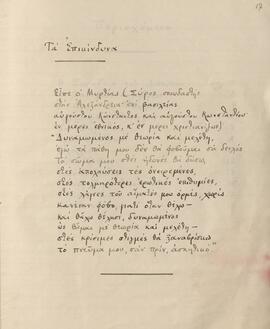 17
Τα Επικίνδυνα
Είπε ο Μυρτίας (Σύρος σπουδαστής
στην Αλεξάνδρεια· επί βασιλείας
αυγούστου Κώνσταντος και αυγούστου Κωνσταντίου·
εν μέρει εθνικός, κ' εν μέρει χριστιανίζων)·
«Δυναμωμένος με θεωρία και μελέτη,
εγώ τα πάθη μου δεν θα φοβούμαι σα δειλός.
Το σώμα μου στες ηδονές θα δώσω,
στες απολαύσεις τες ονειρεμένες,
στες τολμηρότερες ερωτικές επιθυμίες,
στες λάγνες του αίματός μου ορμές, χωρίς
κανέναν φόβο, γιατί όταν θέλω—
και θάχω θέλησι, δυναμωμένος
ως θάμαι με θεωρία και μελέτη—
στες κρίσιμες στιγμές θα ξαναβρίσκω
το πνεύμα μου, σαν πριν, ασκητικό.»